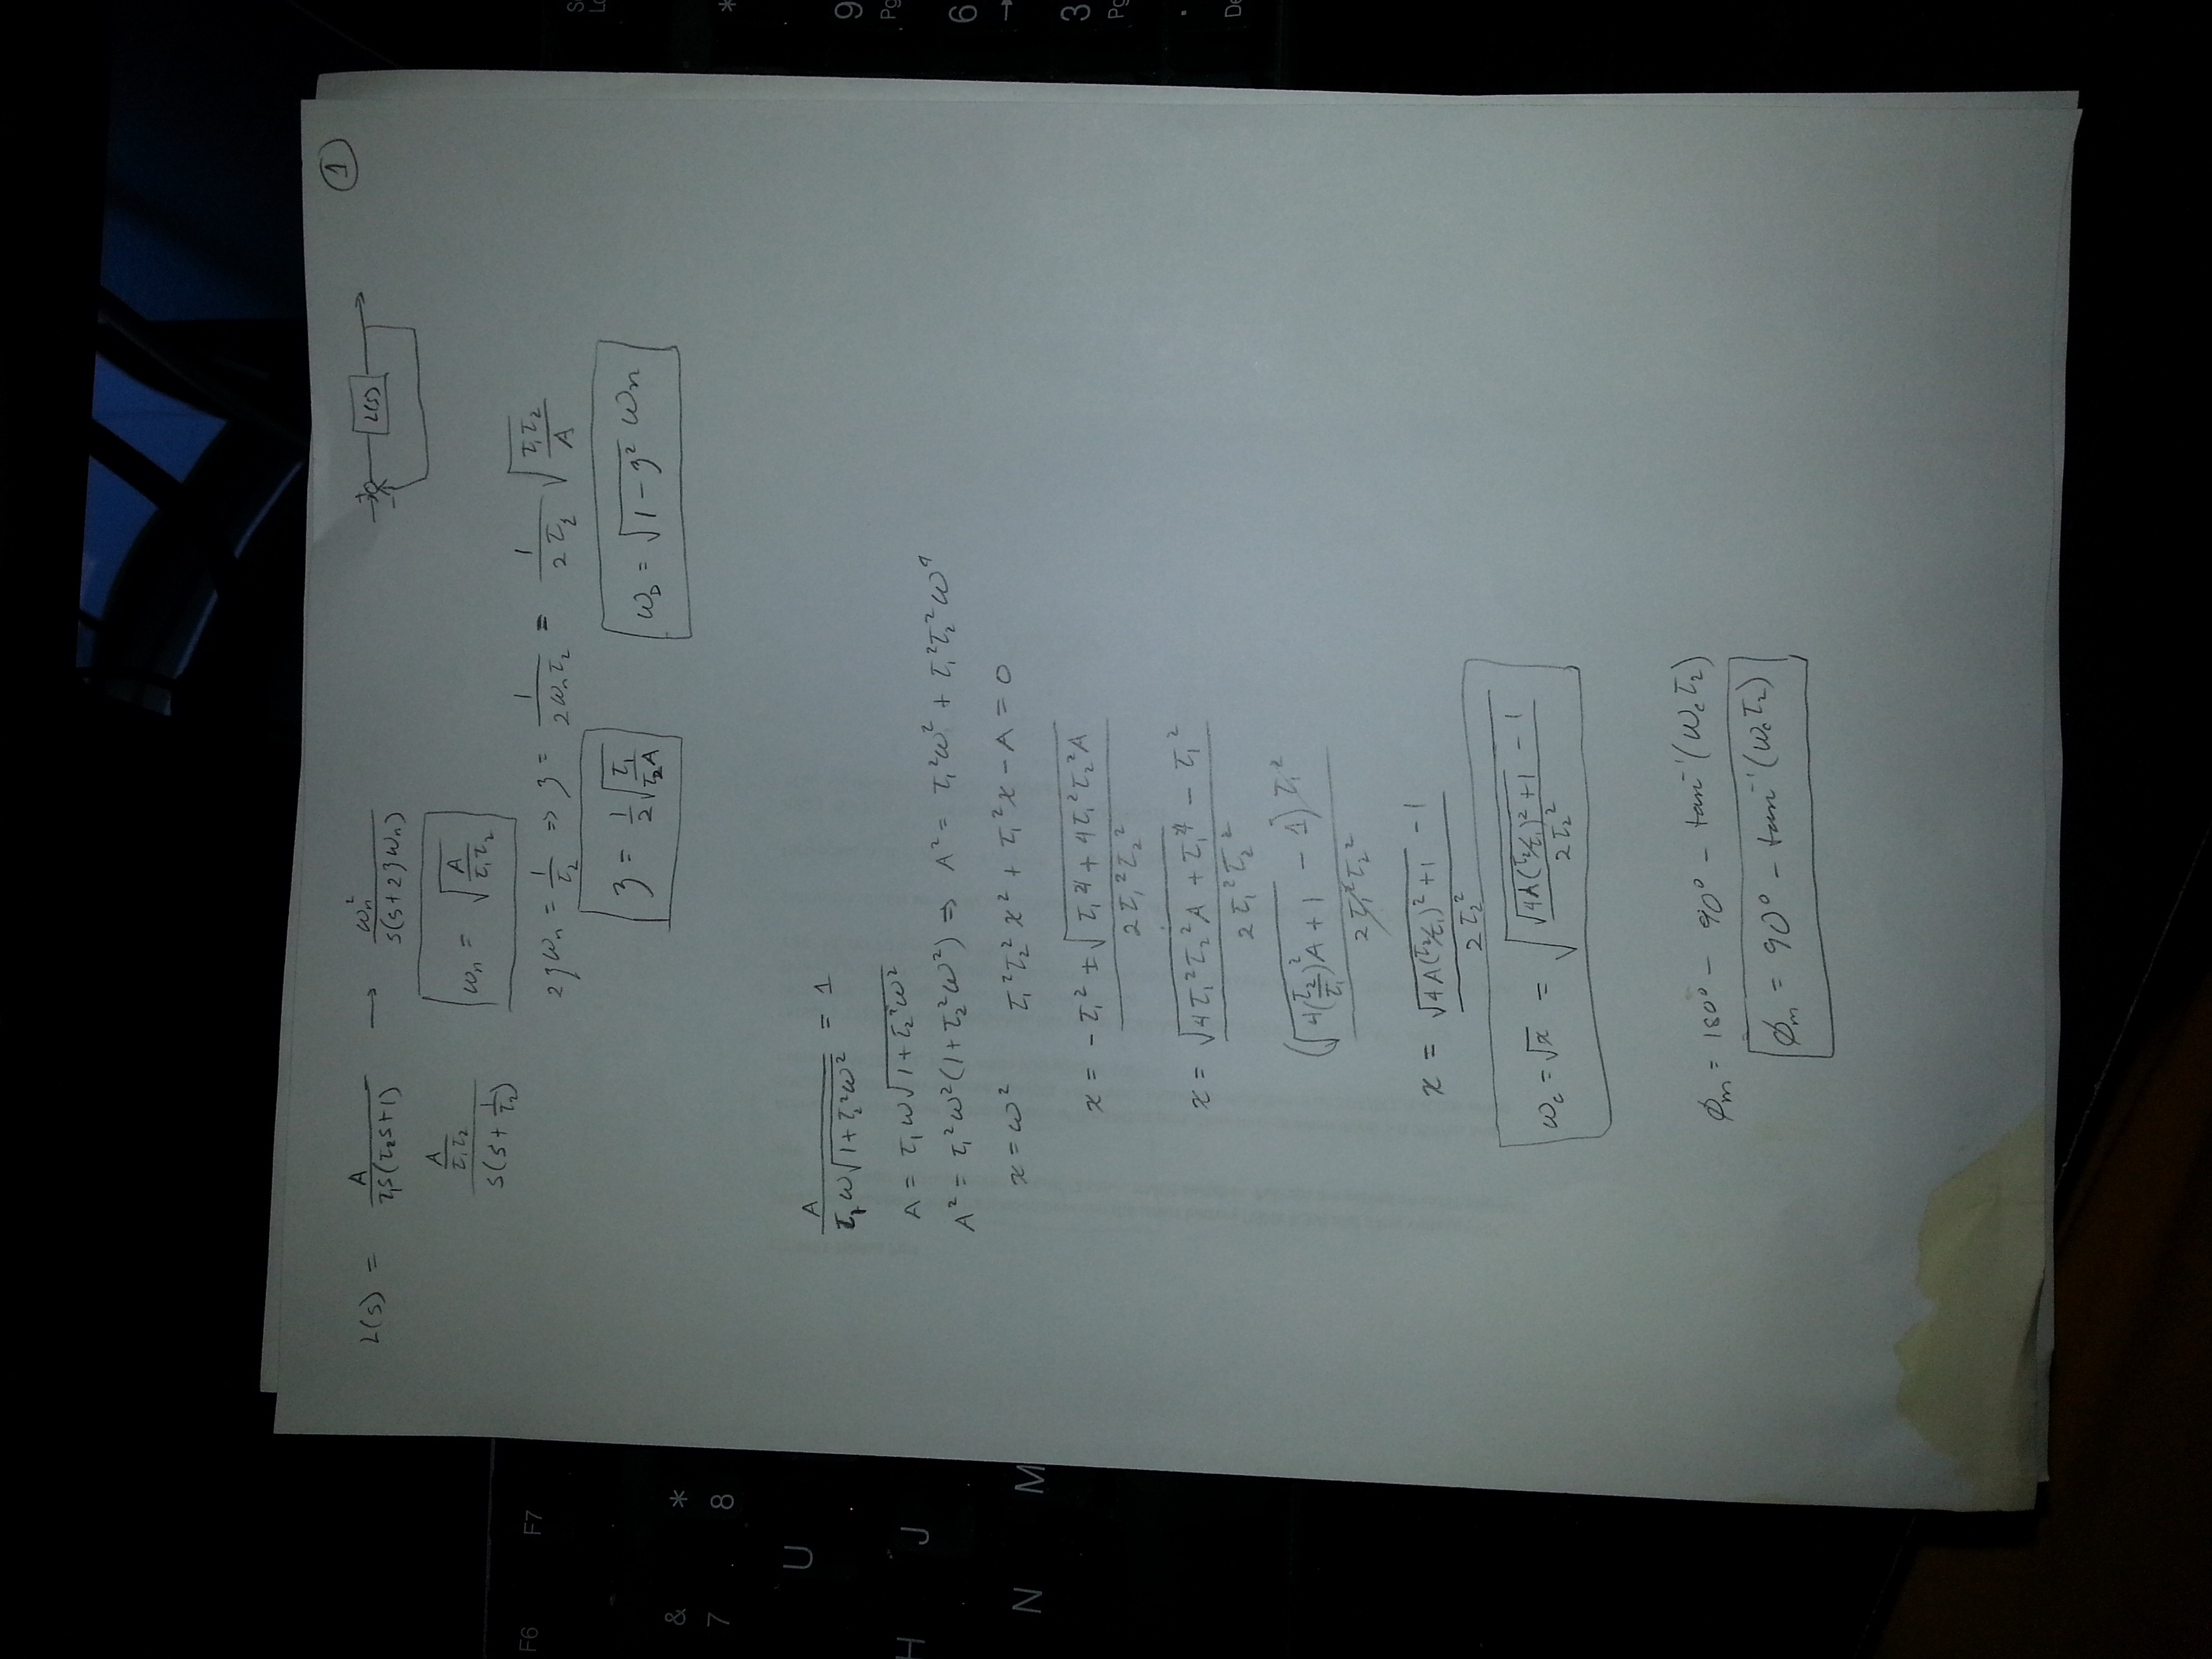 1
L(s) = A / τ₁s(τ₂s+1) → ωn² / s(s+2ζωn)
L(s)
A/τ₁τ₂ / s(s+1/τ₂)
ωn = √(A/τ₁τ₂)
2ζωn = 1/τ₂ ⇒ ζ = 1/(2ωnτ₂) = 1/(2τ₂) √(τ₁τ₂/A)
ζ = 1/2 √(τ₁/τ₂A)
ω_D = √(1-ζ²) ωn
A / τ₁ω√(1+τ₂²ω²) = 1
A = τ₁ω√(1+τ₂²ω²)
A² = τ₁²ω²(1+τ₂²ω²) ⇒ A² = τ₁²ω² + τ₁²τ₂²ω⁴
x = ω² τ₁²τ₂²x² + τ₁²x - A = 0
x = -τ₁² ± √(τ₁⁴ + 4τ₁²τ₂²A) / 2τ₁²τ₂²
x = √(4τ₁²τ₂²A + τ₁⁴) - τ₁² / 2τ₁²τ₂²
(√(4(τ₂/τ₁)²A + 1) - 1)τ₁² / 2τ₁²τ₂²
x = √(4A(τ₂/τ₁)² + 1) - 1 / 2τ₂²
ωc = √x = √((√(4A(τ₂/τ₁)² + 1) - 1) / 2τ₂²)
φm = 180° - 90° - tan⁻¹(ωcτ₂)
φm = 90° - tan⁻¹(ωcτ₂)
F6 F7
&
7
*
8
U
H J
N M
9
6
→
3